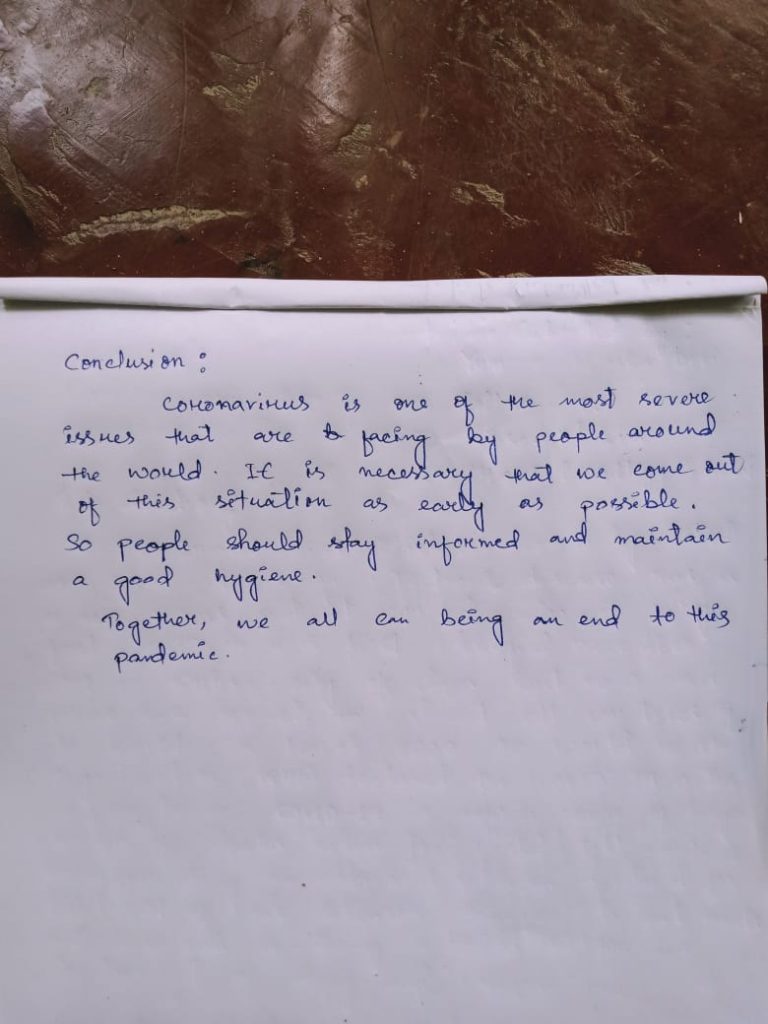 Conclusion :
Coronavirus is one of the most severe
issues that are facing by people around
the world. It is necessary that we come out
of this situation as early as possible.
So people should stay informed and maintain
a good hygiene.
Together, we all can being an end to this
pandemic.